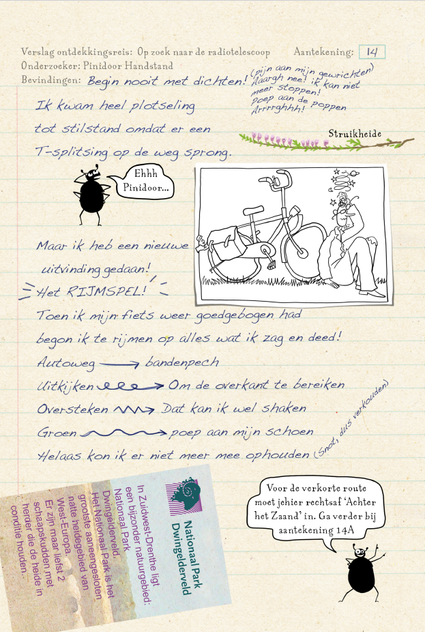 Verslag ontdekkingsreis: Op zoek naar de radiotelescoop Aantekening: 14
Onderzoeker: Pinidoor Handstand
Bevindingen: Begin nooit met dichten!
(pijn aan mijn gewrichten)
Aaargh nee! ik kan niet
meer stoppen!
Poep aan de poppen
Arrrrghhh!
Ik kwam heel plotseling
tot stilstand omdat er een
T-splitsing op de weg sprong.
Struikheide
Ehhh
Pinidoor...
Maar ik heb een nieuwe
uitvinding gedaan!
Het RIJMSPEL!
Toen ik mijn fiets weer goedgebogen had
begon ik te rijmen op alles wat ik zag en deed!
Autoweg bandenpech
Uitkijken Om de overkant te bereiken
Oversteken Dat kan ik wel shaken
Groen poep aan mijn schoen
Helaas kon ik er niet meer mee ophouden (Snot, dus verkouden)
Nationaal Park
Dwingelderveld
In Zuidwest-Drenthe ligt
een bijzonder natuurgebied:
Nationaal Park
Dwingelderveld.
Het Nationaal Park is het
grootste aaneengesloten
natte heidegebied van
West-Europa.
Er zijn maar liefst 2
schaapskudden met
herder die de heide in
conditie houden.
Voor de verkorte route
moet jehier rechtsaf 'Achter
het Zaand' in. Ga verder bij
aantekening 14A